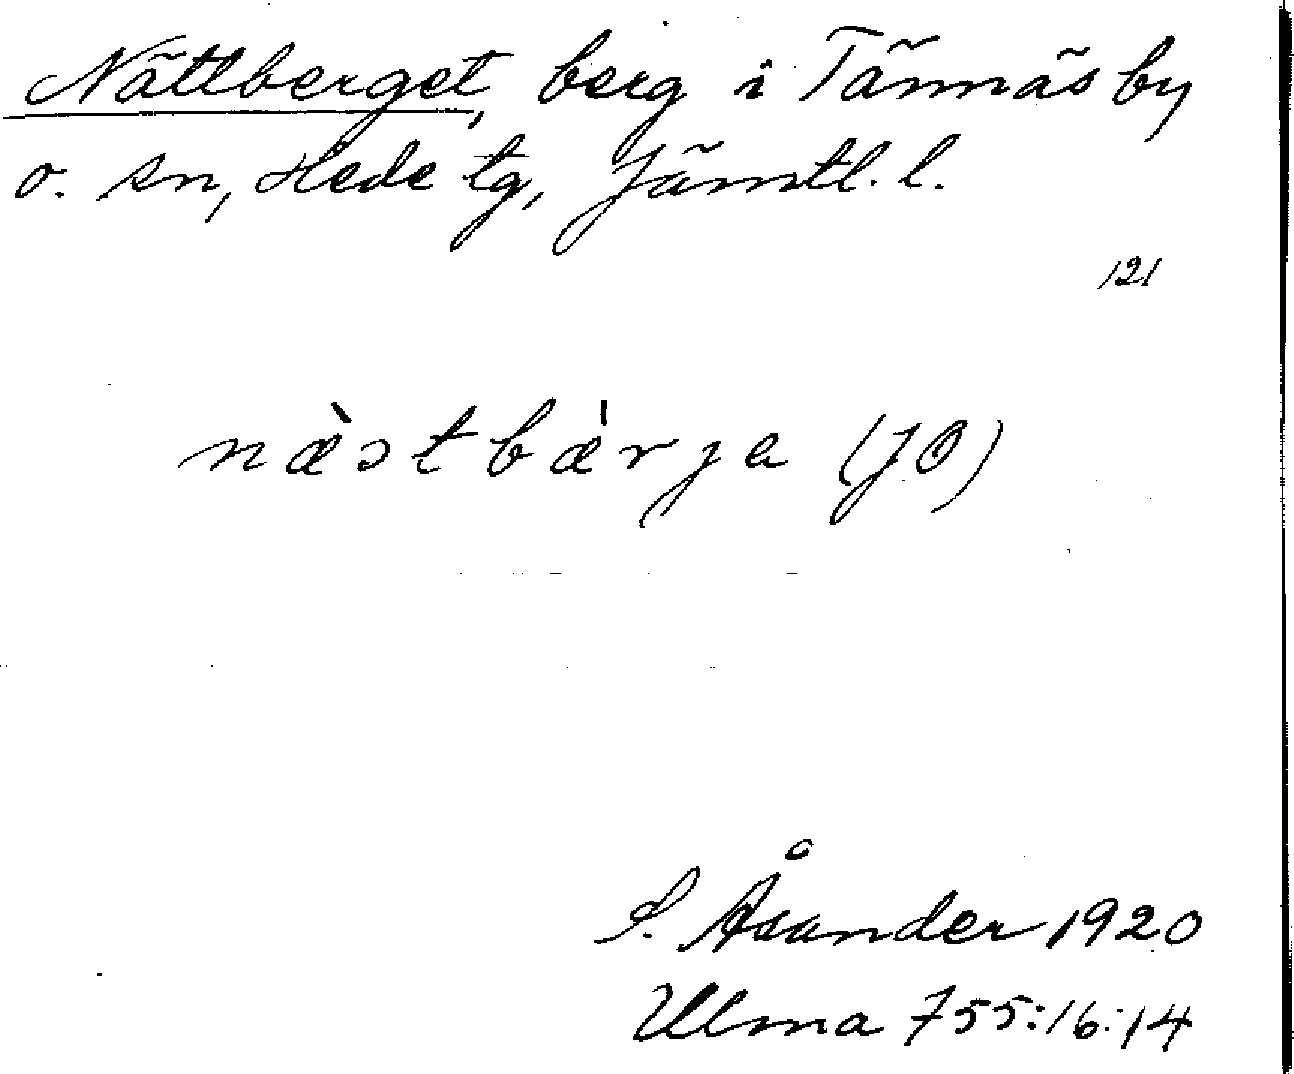 Nättberget, berg i Tännäs by
o. sn, Hede tg, Jämtl. l.
121
næ̀stbæ̀rja (JO)
S. Åsander 1920
Ulma 755:16:14